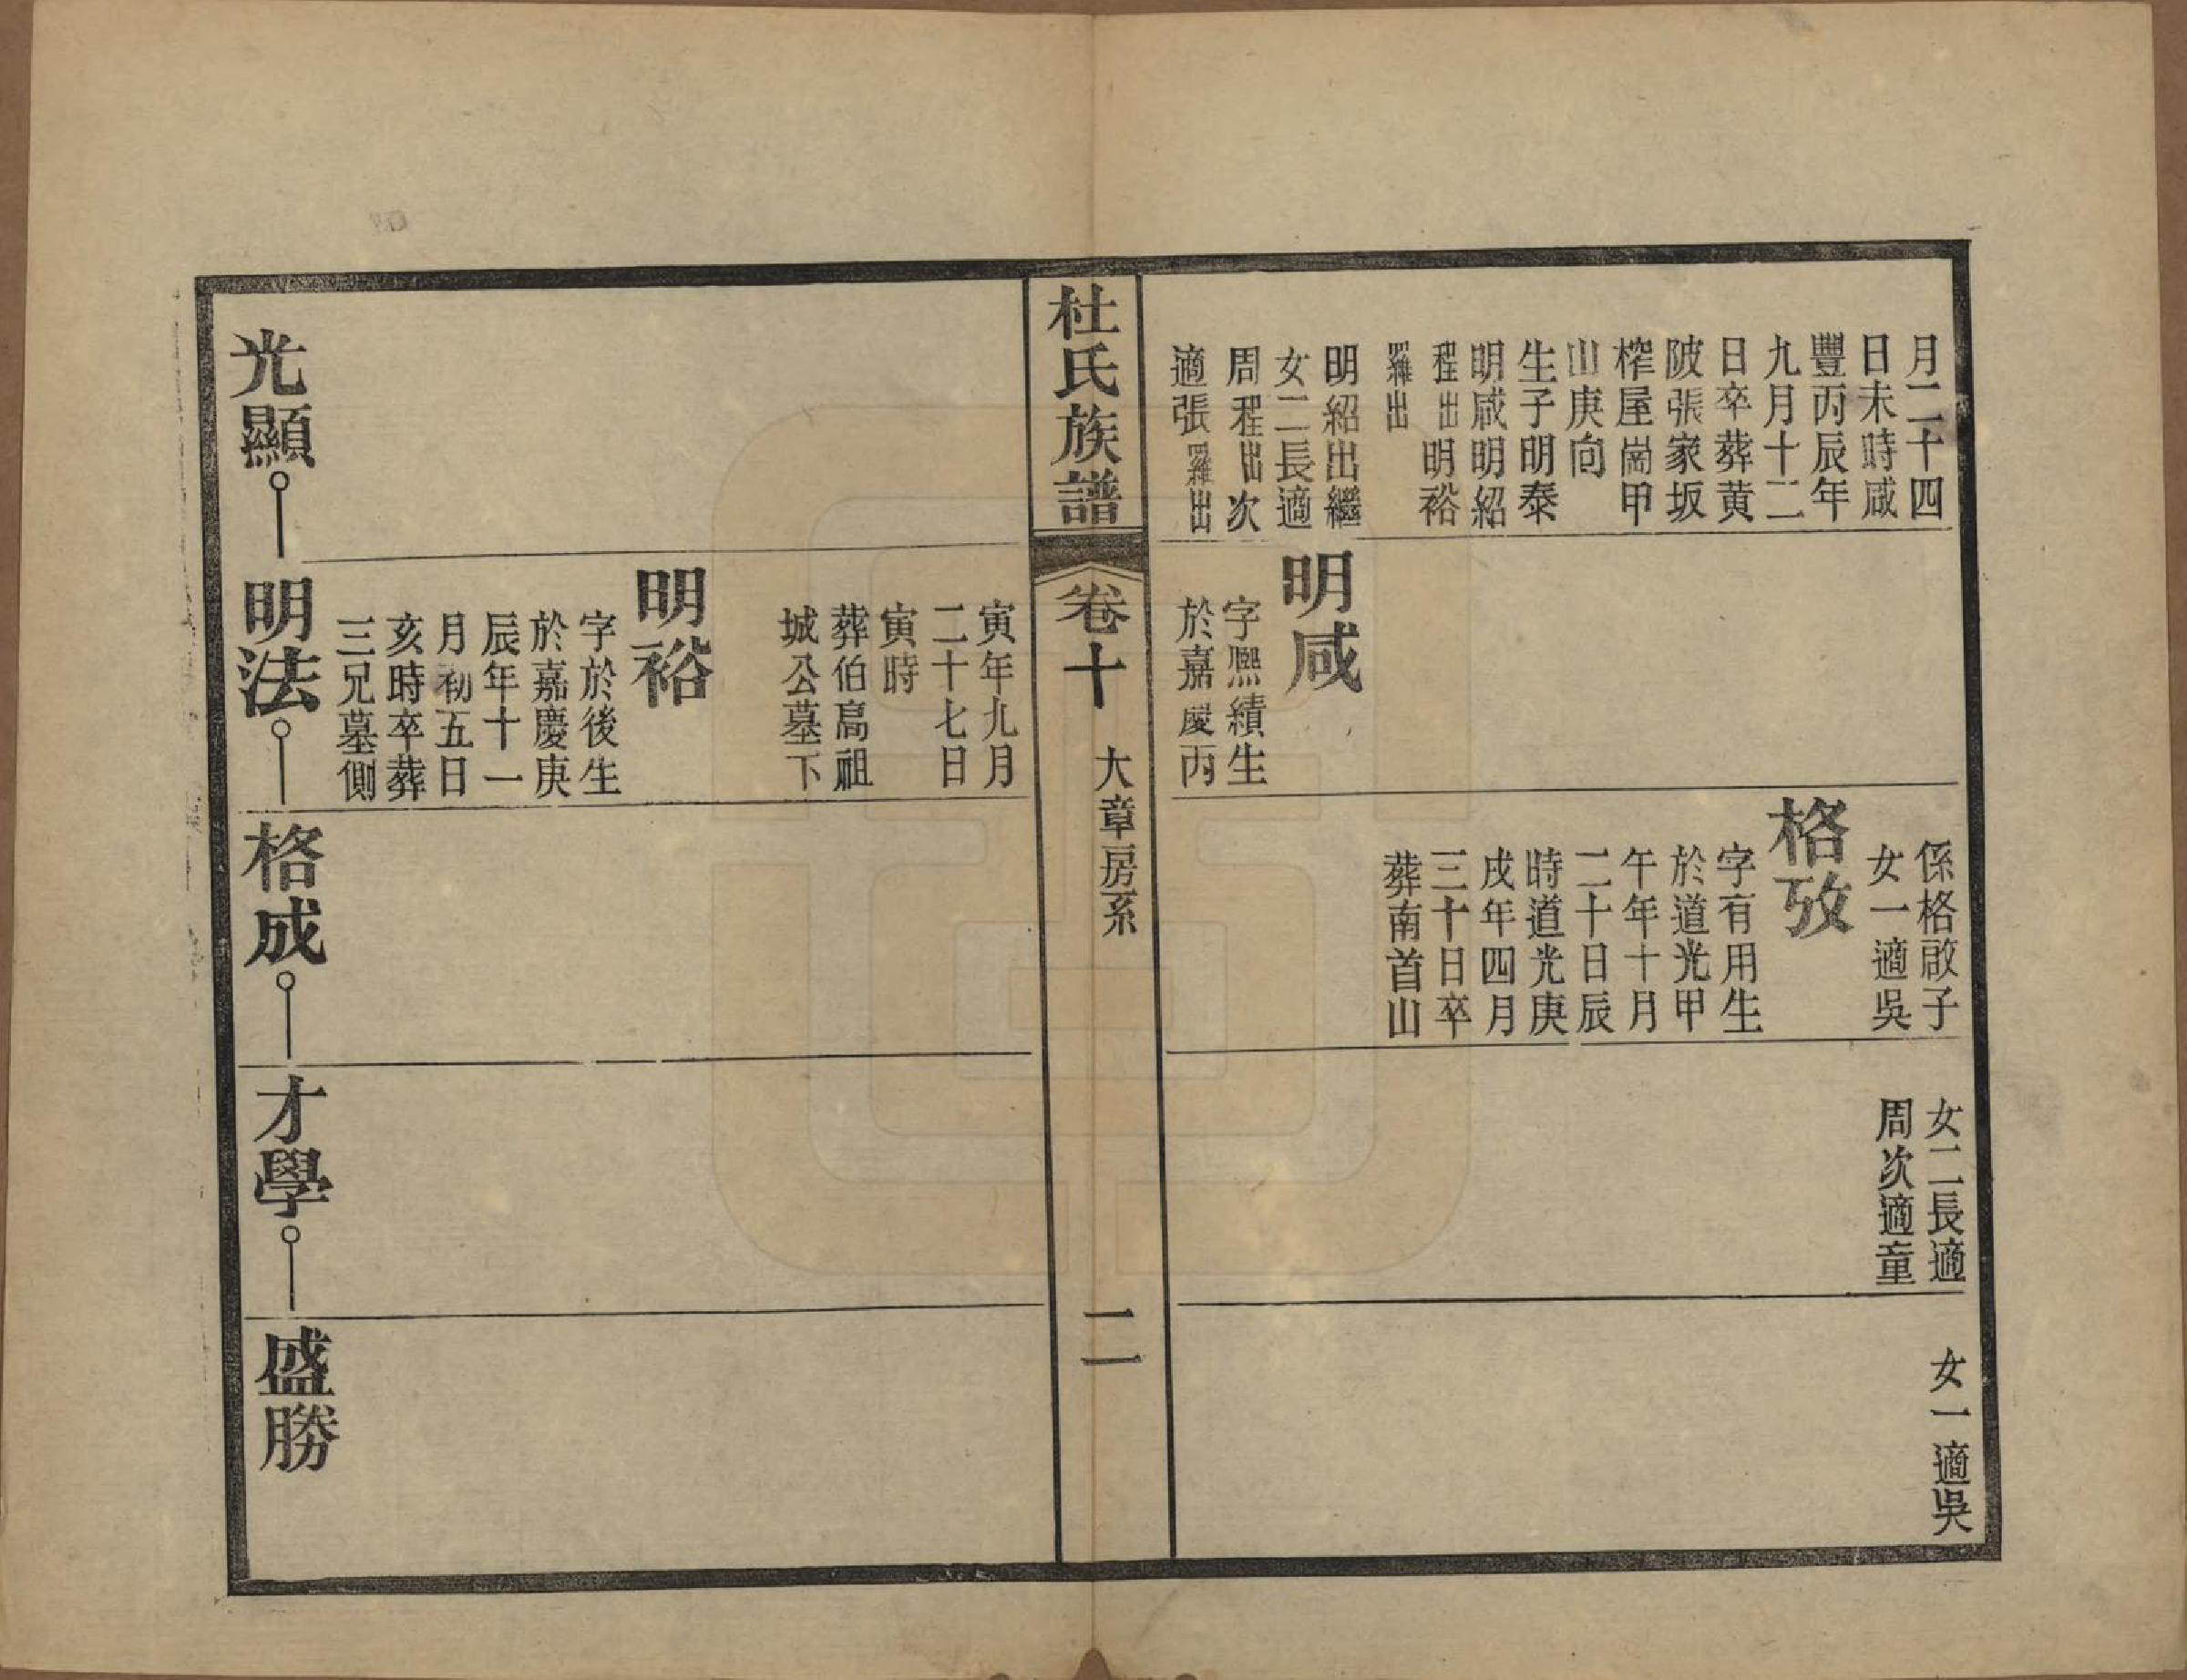 月二十四
日未時咸
豐丙辰年
九月十二
日卒葬黃
陂張家坂
榨屋崗甲
山庚向
生子明泰
明咸明紹
程出明裕
羅出
明紹出繼
女二長適
周程出次
適張羅出
明咸
字熈績生
於嘉慶丙
係格啟子
女一適吳
格攷
字有用生
於道光甲
午年十月
二十日辰
時道光庚
戌年四月
三十日卒
葬南首山
女二長適
周次適童
女一適吳
杜氏族譜
卷十
大章房系
二
寅年九月
二十七日
寅時
葬伯高祖
城公墓下
明裕
字於後生
於嘉慶庚
辰年十一
月初五日
亥時卒葬
三兄墓側
光顯
明法
格成
才學
盛勝